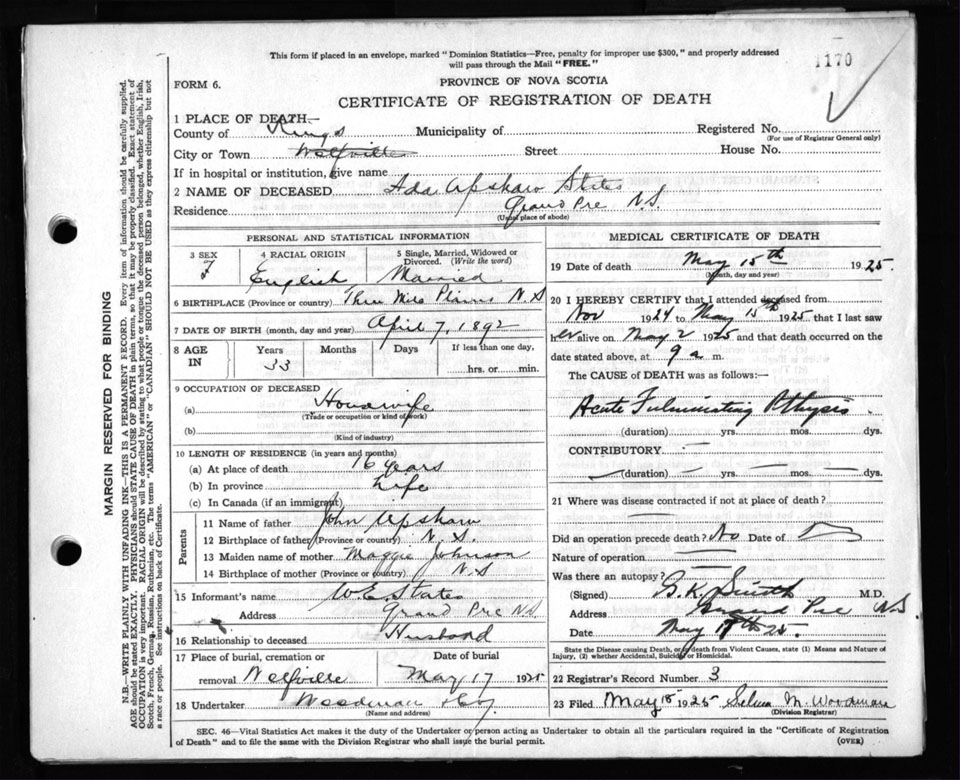 This form if placed in an envelope, marked "Dominion Statistics—Free, penalty for improper use $300," and properly addressed
will pass through the Mail "FREE."
1170
FORM 6.
PROVINCE OF NOVA SCOTIA
CERTIFICATE OF REGISTRATION OF DEATH
1 PLACE OF DEATH—
County of Kings Municipality of Registered No.
(For use of Registrar General only)
City or Town Wolfville Street House No.
If in hospital or institution, give name
2 NAME OF DECEASED Ada Upshaw States
Residence Grand Pre N.S.
(Usual place of abode)
PERSONAL AND STATISTICAL INFORMATION
3 SEX 4 RACIAL ORIGIN 5 Single, Married, Widowed or Divorced. (Write the word)
F English Married
6 BIRTHPLACE (Province or country) Three Mile Plains N.S
7 DATE OF BIRTH (month, day and year) April 7, 1892
8 AGE IN Years Months Days If less than one day,
33 hrs. or min.
9 OCCUPATION OF DECEASED
(a) Housewife
(Trade or occupation or kind of work)
(b)
(Kind of industry)
10 LENGTH OF RESIDENCE (in years and months)
(a) At place of death 16 years
(b) In province Life
(c) In Canada (if an immigrant)
Parents
11 Name of father John Upshaw
12 Birthplace of father (Province or country) N.S.
13 Maiden name of mother Maggie Johnson
14 Birthplace of mother (Province or country) N.S
15 Informant's name W E States
Address Grand Pre N.S.
16 Relationship to deceased Husband
17 Place of burial, cremation or Date of burial
removal Wolfville May 17 1925
18 Undertaker Woodman
(Name and address)
MEDICAL CERTIFICATE OF DEATH
19 Date of death May 15th 1925.
(Month, day and year)
20 I HEREBY CERTIFY that I attended deceased from
Nov 1924 to May 15th 1925 that I last saw
her alive on May 2 1925 and that death occurred on the
date stated above, at 9 a m.
The CAUSE of DEATH was as follows:—
Acute Fulminating Pthysis.
(duration) yrs. mos. dys.
CONTRIBUTORY
(duration) yrs. mos. dys.
21 Where was disease contracted if not at place of death?
Did an operation precede death? No Date of
Nature of operation
Was there an autopsy?
(Signed) B.K. Smith M.D.
Address Grand Pre N.S
Date May 17th 25.
State the Disease causing Death, or, if death from Violent Causes, state (1) Means and Nature of
Injury, (2) whether Accidental, Suicidal or Homicidal.
22 Registrar's Record Number 3
23 Filed May 18 1925 Selina M. Woodman
(Division Registrar)
SEC. 46—Vital Statistics Act makes it the duty of the Undertaker or person acting as Undertaker to obtain all the particulars required in the "Certificate of Registration
of Death" and to file the same with the Division Registrar who shall issue the burial permit.
(OVER)
MARGIN RESERVED FOR BINDING
N.B.—WRITE PLAINLY WITH UNFADING INK—THIS IS A PERMANENT RECORD. Every item of information should be carefully supplied.
AGE should be stated EXACTLY. PHYSICIANS should STATE CAUSE OF DEATH in plain terms, so that it may be properly classified. Exact statement of
OCCUPATION is very important. RACIAL ORIGIN will be described by stating to what people or tongue the deceased person belonged, whether English, Irish,
Scotch, French, German, Russian, Ruthenian, etc. The terms "AMERICAN" or "CANADIAN" SHOULD NOT BE USED as they express citizenship but not
a race or people. See instructions on back of Certificate.